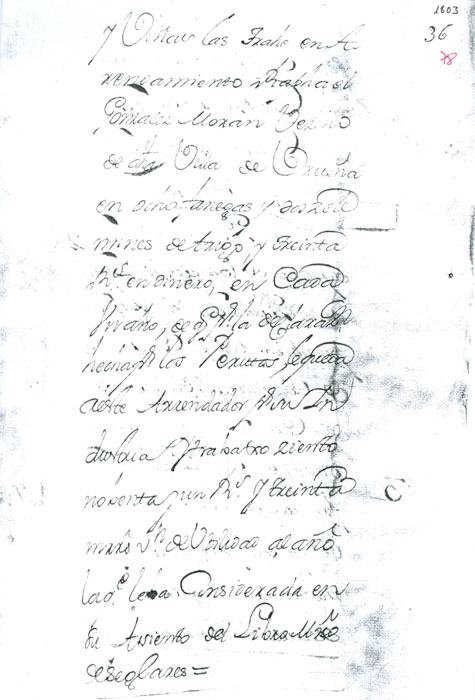 1803
36
78
y Viñas las trahe en Ar
rendamiento Raphael
Gonzalez Moran Vezino
de dha Villa de Coruña
en ocho fanegas y dos zele
mines de trigo, y treinta
Rs. en dinero, en Cada
Un año, de qe. pr. la declarazn.
hecha pr. los Peritos, le queda
a este Arrendador pr. su In
dustria y trabaxo ziento
nobenta y un Rs. y treinta
mars. vn. de Utilidad al año
la qe. le ba Considerada en
su Asiento del Libro Mrõ
de Seglares =